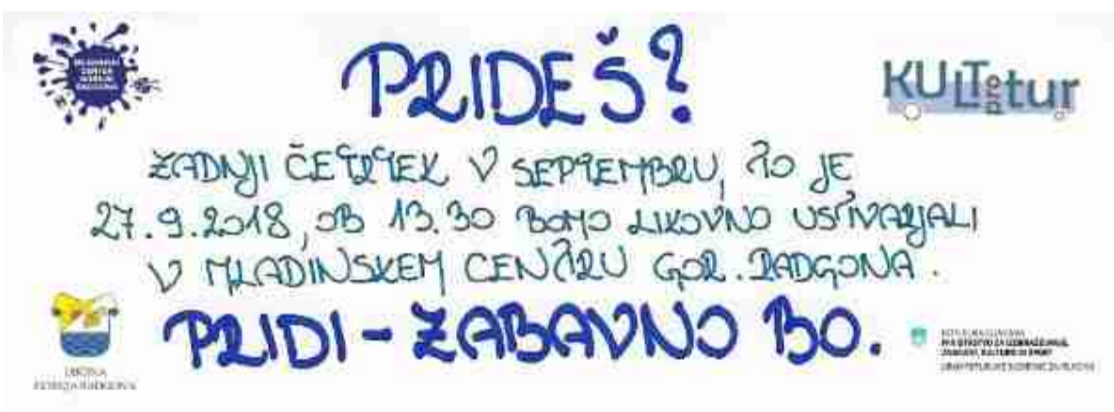 PRIDEŠ?
MLADINSKI
CENTER
GORNJA
RADGONA
KULTpretur
ZADNJI ČETRTEK V SEPTEMBRU, TO JE,
27.9.2018, OB 13.30 BOMO LIKOVNO USTVARJALI
V MLADINSKEM CENTRU GOR. RADGONA.
PRIDI - ZABAVNO BO.
OBČINA
GORNJA RADGONA
REPUBLIKA SLOVENIJA
MINISTRSTVO ZA IZOBRAŽEVANJE,
ZNANOST, KULTURO IN ŠPORT